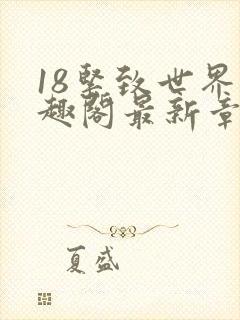 18坚致世界
趣阁最新章
夏盛